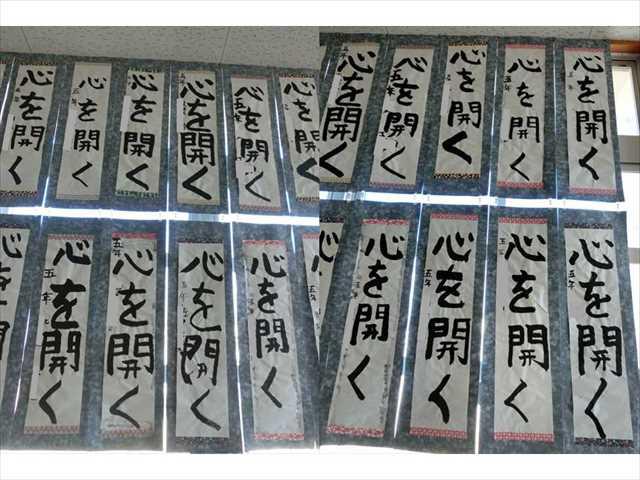 心を開く
心を開く
五年
心を開く
心を開く
心を開く
五年
心を開く
心を開く
五年
心を開く
五年
心を開く
五年
心を開く
心を開く
心を開く
五年
心を開く
心を開く
五年
心を開く
五年
心を開く
五年
心を開く
五年
心を開く
五年
心を開く
五年